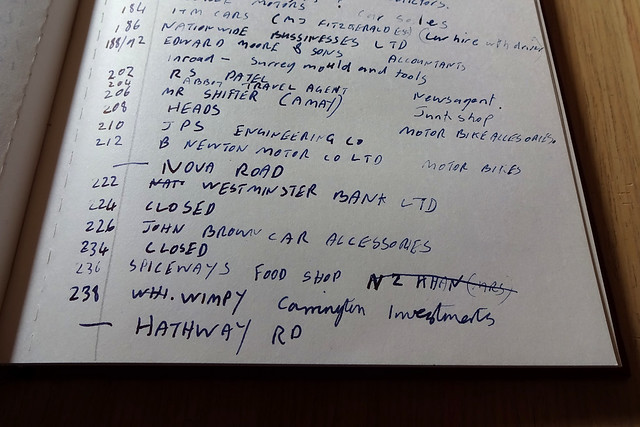 MOTORS
184 ITM CARS (MJ FITZGERALDES) car sales
186 NATIONWIDE BUSSINESSES LTD (Car hire with driver
188/92 EDWARD MOORE & SONS ACCOUNTANTS
inroad - Surrey mould and tools
202 RS PATEL Newsagent.
204 ABBOT TRAVEL AGENT
206 MR SHIFTER (AMAY) Junk shop
208 HEADS MOTOR BIKE ACCESSORIES
210 JPS ENGINEERING CO
212 B NEWTON MOTOR CO LTD MOTOR BIKES
— NOVA ROAD
222 NAT WESTMINSTER BANK LTD
224 CLOSED
226 JOHN BROWN CAR ACCESSORIES
234 CLOSED
236 SPICEWAYS FOOD SHOP N Z KHAN (CARS)
238 WH. WIMPY Carrington Investments
— HATHWAY RD